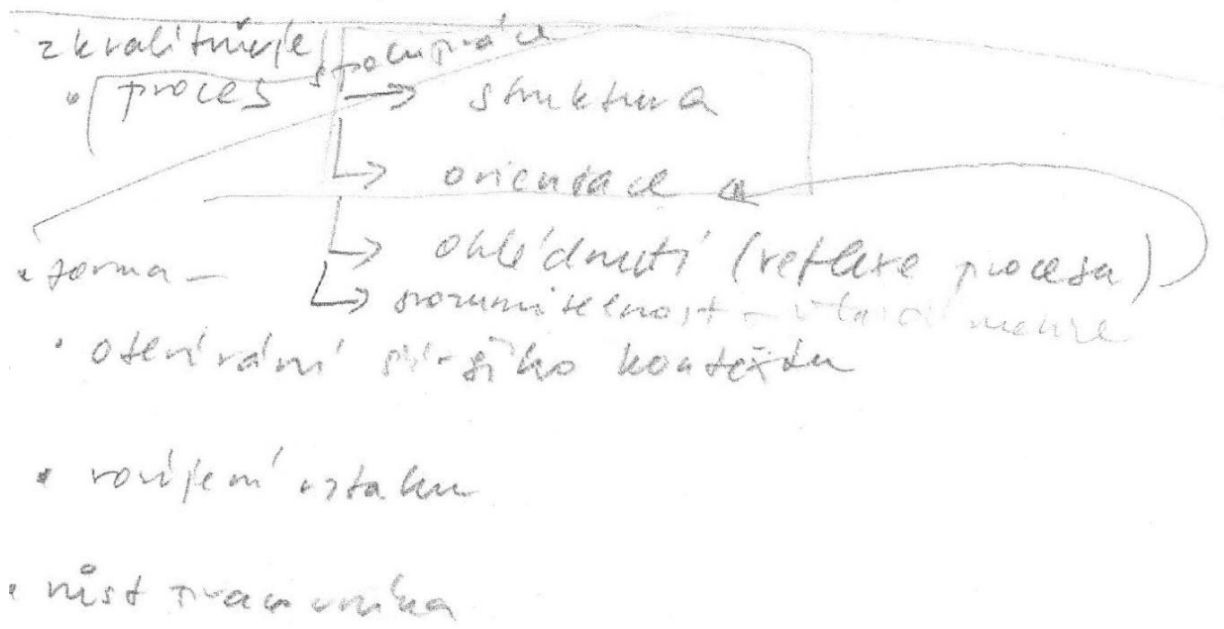 zkvalitňuje
spolupráce
• proces → struktura
→ orientace a
→ ohlédnutí (reflexe procesu)
• forma –
→ srozumitelnost –
• otevírání širšího kontextu
• rozvíjení vztahu
• růst pracovníka